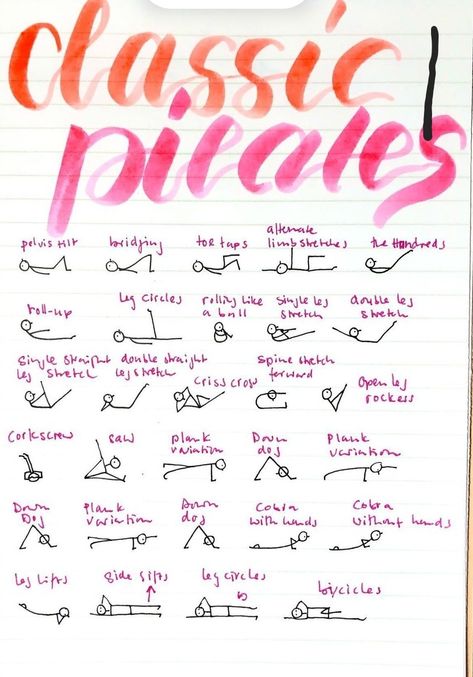 classic
pilates
pelvis tilt
bridging
toe taps
alternate
limb stretches
the Hundreds
roll-up
leg circles
rolling like
a ball
single leg
stretch
double leg
stretch
single straight
leg stretch
double straight
leg stretch
criss cross
spine stretch
forward
open leg
rockers
corkscrew
saw
plank
variation
Down
dog
Plank
variation
Down
Dog
Plank
variation
Down
dog
Cobra
with hands
Cobra
without hands
leg lifts
side lifts
leg circles
bicicles